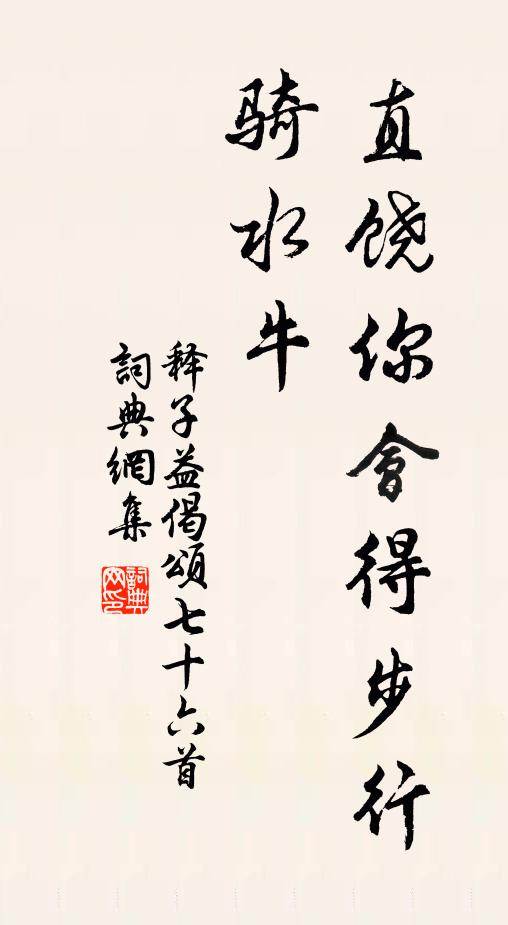 直饶你會得步行
骑水牛
释子益偈頌七十六首
詞典網集
詞典网印